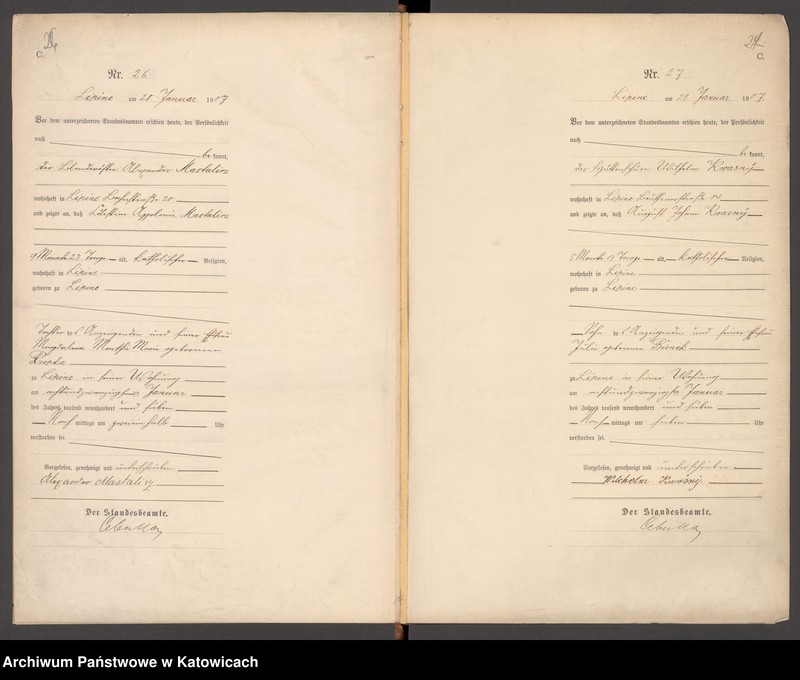 26
C.
Nr. 26
Lipine am 28 Januar 1907
Vor dem unterzeichneten Standesbeamten erschien heute, der Persönlichkeit
nach
be kannt,
der Alexander Mastalirz
wohnhaft in Lipine 20
und zeigte an, daß Mastalirz
9 Monate 23 Tage alt, katholischer Religion,
wohnhaft in Lipine
geboren zu Lipine
Tochter des Anzeigenden und seiner Ehefrau
Magdalena Martha Marie geborenen
Krupka
zu Lipine in seiner Wohnung
am achtundzwanzigsten Januar
des Jahres tausend neunhundert und sieben
Nach mittags um Uhr
verstorben sei.
Vorgelesen, genehmigt und unterschrieben
Alexander Mastalirz
Der Standesbeamte.
27
C.
Nr. 27
Lipine am 29 Januar 1907.
Vor dem unterzeichneten Standesbeamten erschien heute, der Persönlichkeit
nach
be kannt,
der Wilhelm Kwasny
wohnhaft in Lipine 14
und zeigte an, daß August Johann Kwasny
5 Monate 13 Tage alt, katholischer Religion,
wohnhaft in Lipine
geboren zu Lipine
Sohn des Anzeigenden und seiner Ehefrau
Julie geborenen Bienek
zu Lipine in seiner Wohnung
am achtundzwanzigsten Januar
des Jahres tausend neunhundert und sieben
Nach mittags um sieben Uhr
verstorben sei.
Vorgelesen, genehmigt und unterschrieben
Wilchelm Kwasny
Der Standesbeamte.
Archiwum Państwowe w Katowicach